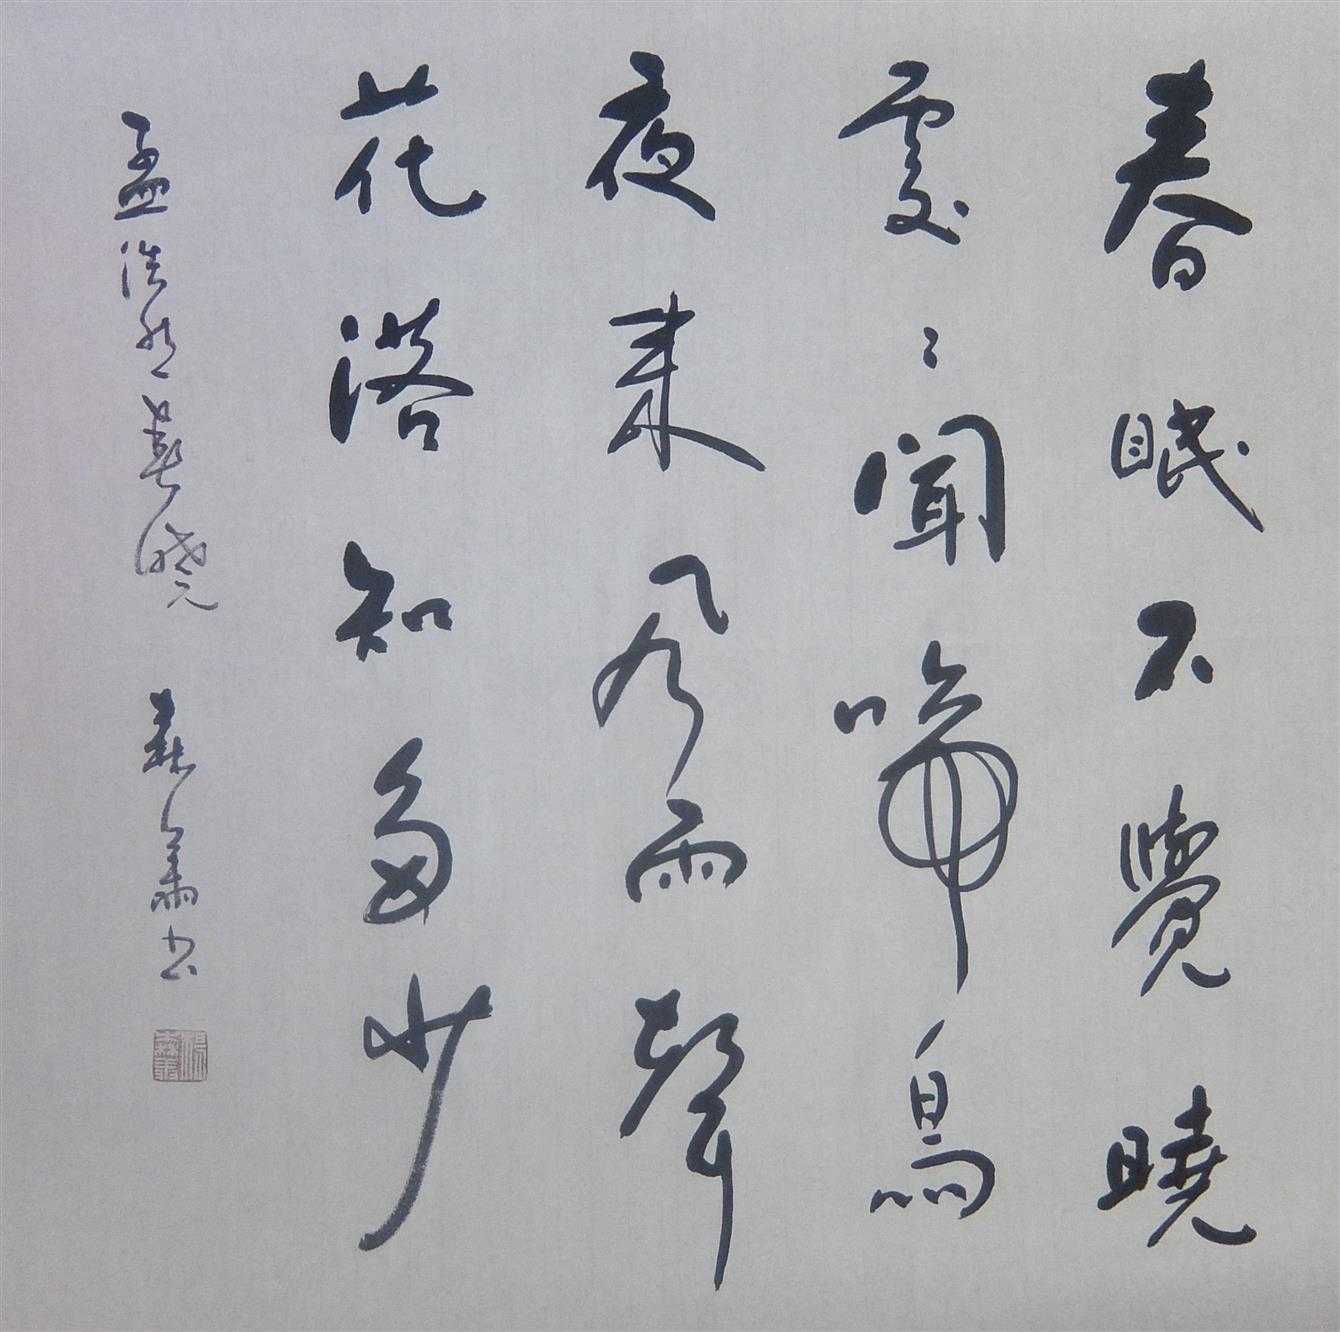 春眠不覺曉
處々聞啼鳥
夜来風雨聲
花落知多少
孟浩然春曉
書